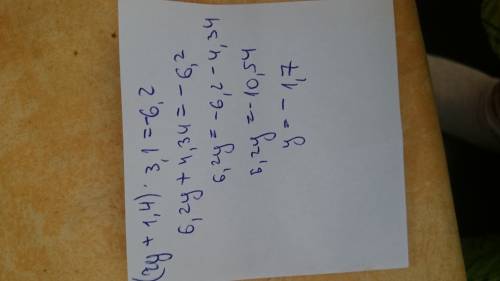 (2y + 1,4) · 3,1 = -6,2
6,2y + 4,34 = -6,2
6,2y = -6,2 - 4,34
6,2y = -10,54
y = -1,7